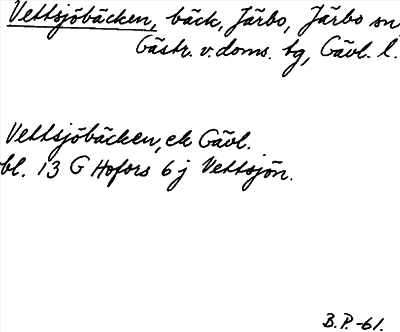 Vettsjöbäcken, bäck, Järbo, Järbo sn
Gästr. v. doms. tg, Gävl. l.
Vettsjöbäcken, ek Gävl.
bl. 13 G Hofors 6 j Vettsjön.
B.P.-61.